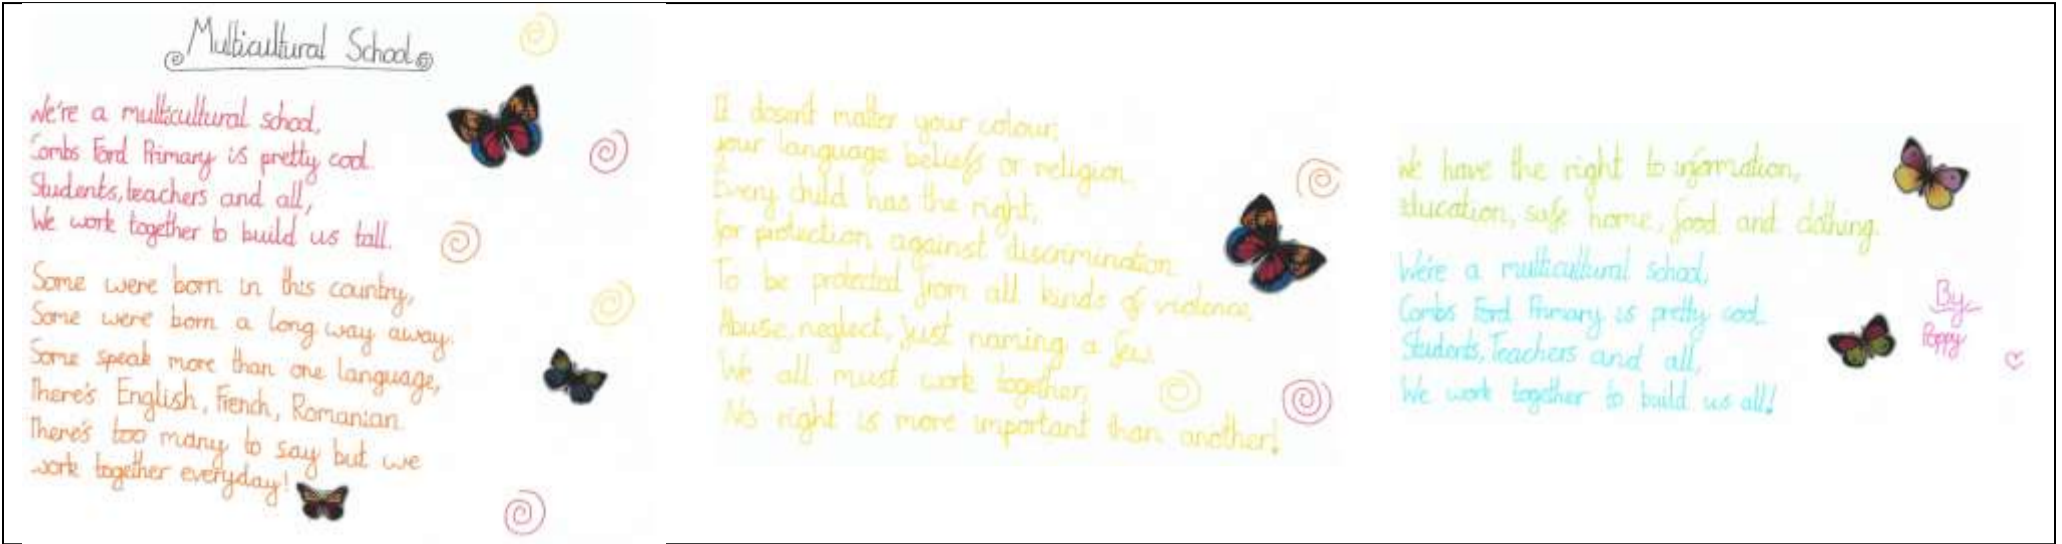 Multicultural School
We're a multicultural school,
Combs Ford Primary is pretty cool.
Students, teachers and all,
We work together to build us tall.
Some were born in this country,
Some were born a long way away.
Some speak more than one language,
There's English, French, Romanian.
There's too many to say but we
work together everyday!
It dosent matter your colour,
your language beliefs or religion.
Every child has the right,
for protection against discrimination.
To be protected from all kinds of violence,
Abuse, neglect, just naming a few.
We all must work together,
No right is more important than another!
We have the right to information,
education, safe home, food and clothing.
We're a multicultural school,
Combs Ford Primary is pretty cool.
Students, Teachers and all,
We work together to build us all!
By
Poppy